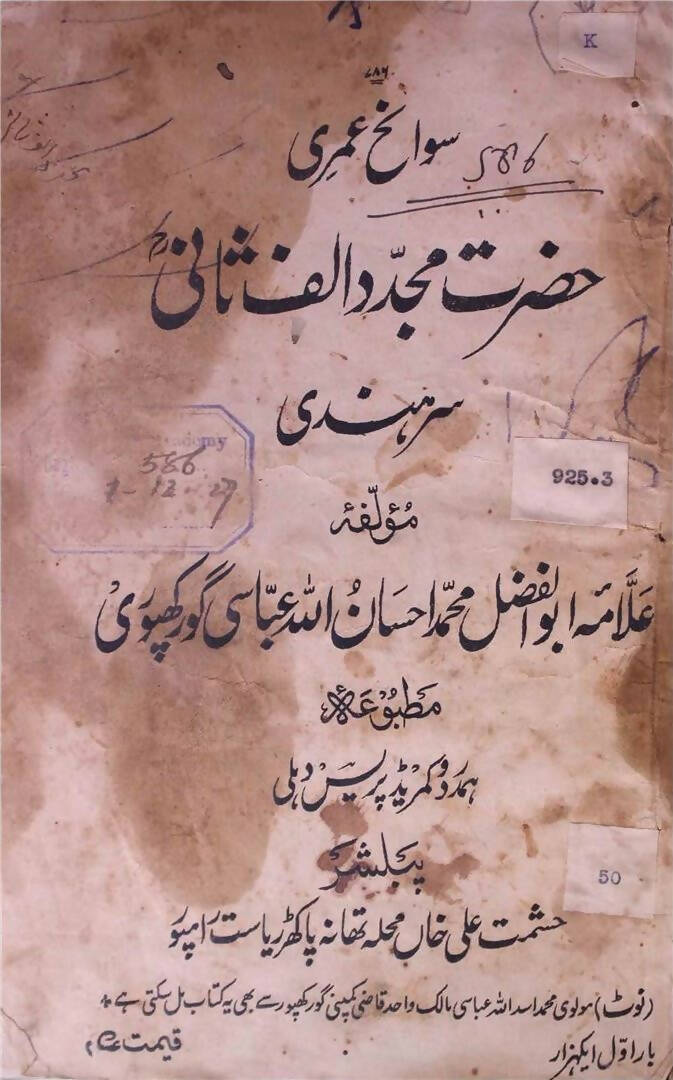 K
۷۸۶
سوانح عمری
حضرت مجدّد الف ثانیؒ
سرہندی
demy
586
1-12-27
925.3
مؤلّفہٗ
علّامہ ابوالفضل محمّد احسانُ اللہ عبّاسی گورکھپوری
مطبُوعہ
ہمدرد و کمریڈ پریس دہلی
پبلشر
50
حشمت علی خاں محلہ تھانہ پاکھڑ ریاست رامپور
(نوٹ) مولوی محمد اسد اللہ عباسی مالک واحد قاضی کمپنی گورکھپور سے بھی یہ کتاب مل سکتی ہے
بار اوّل ایکہزار
قیمت